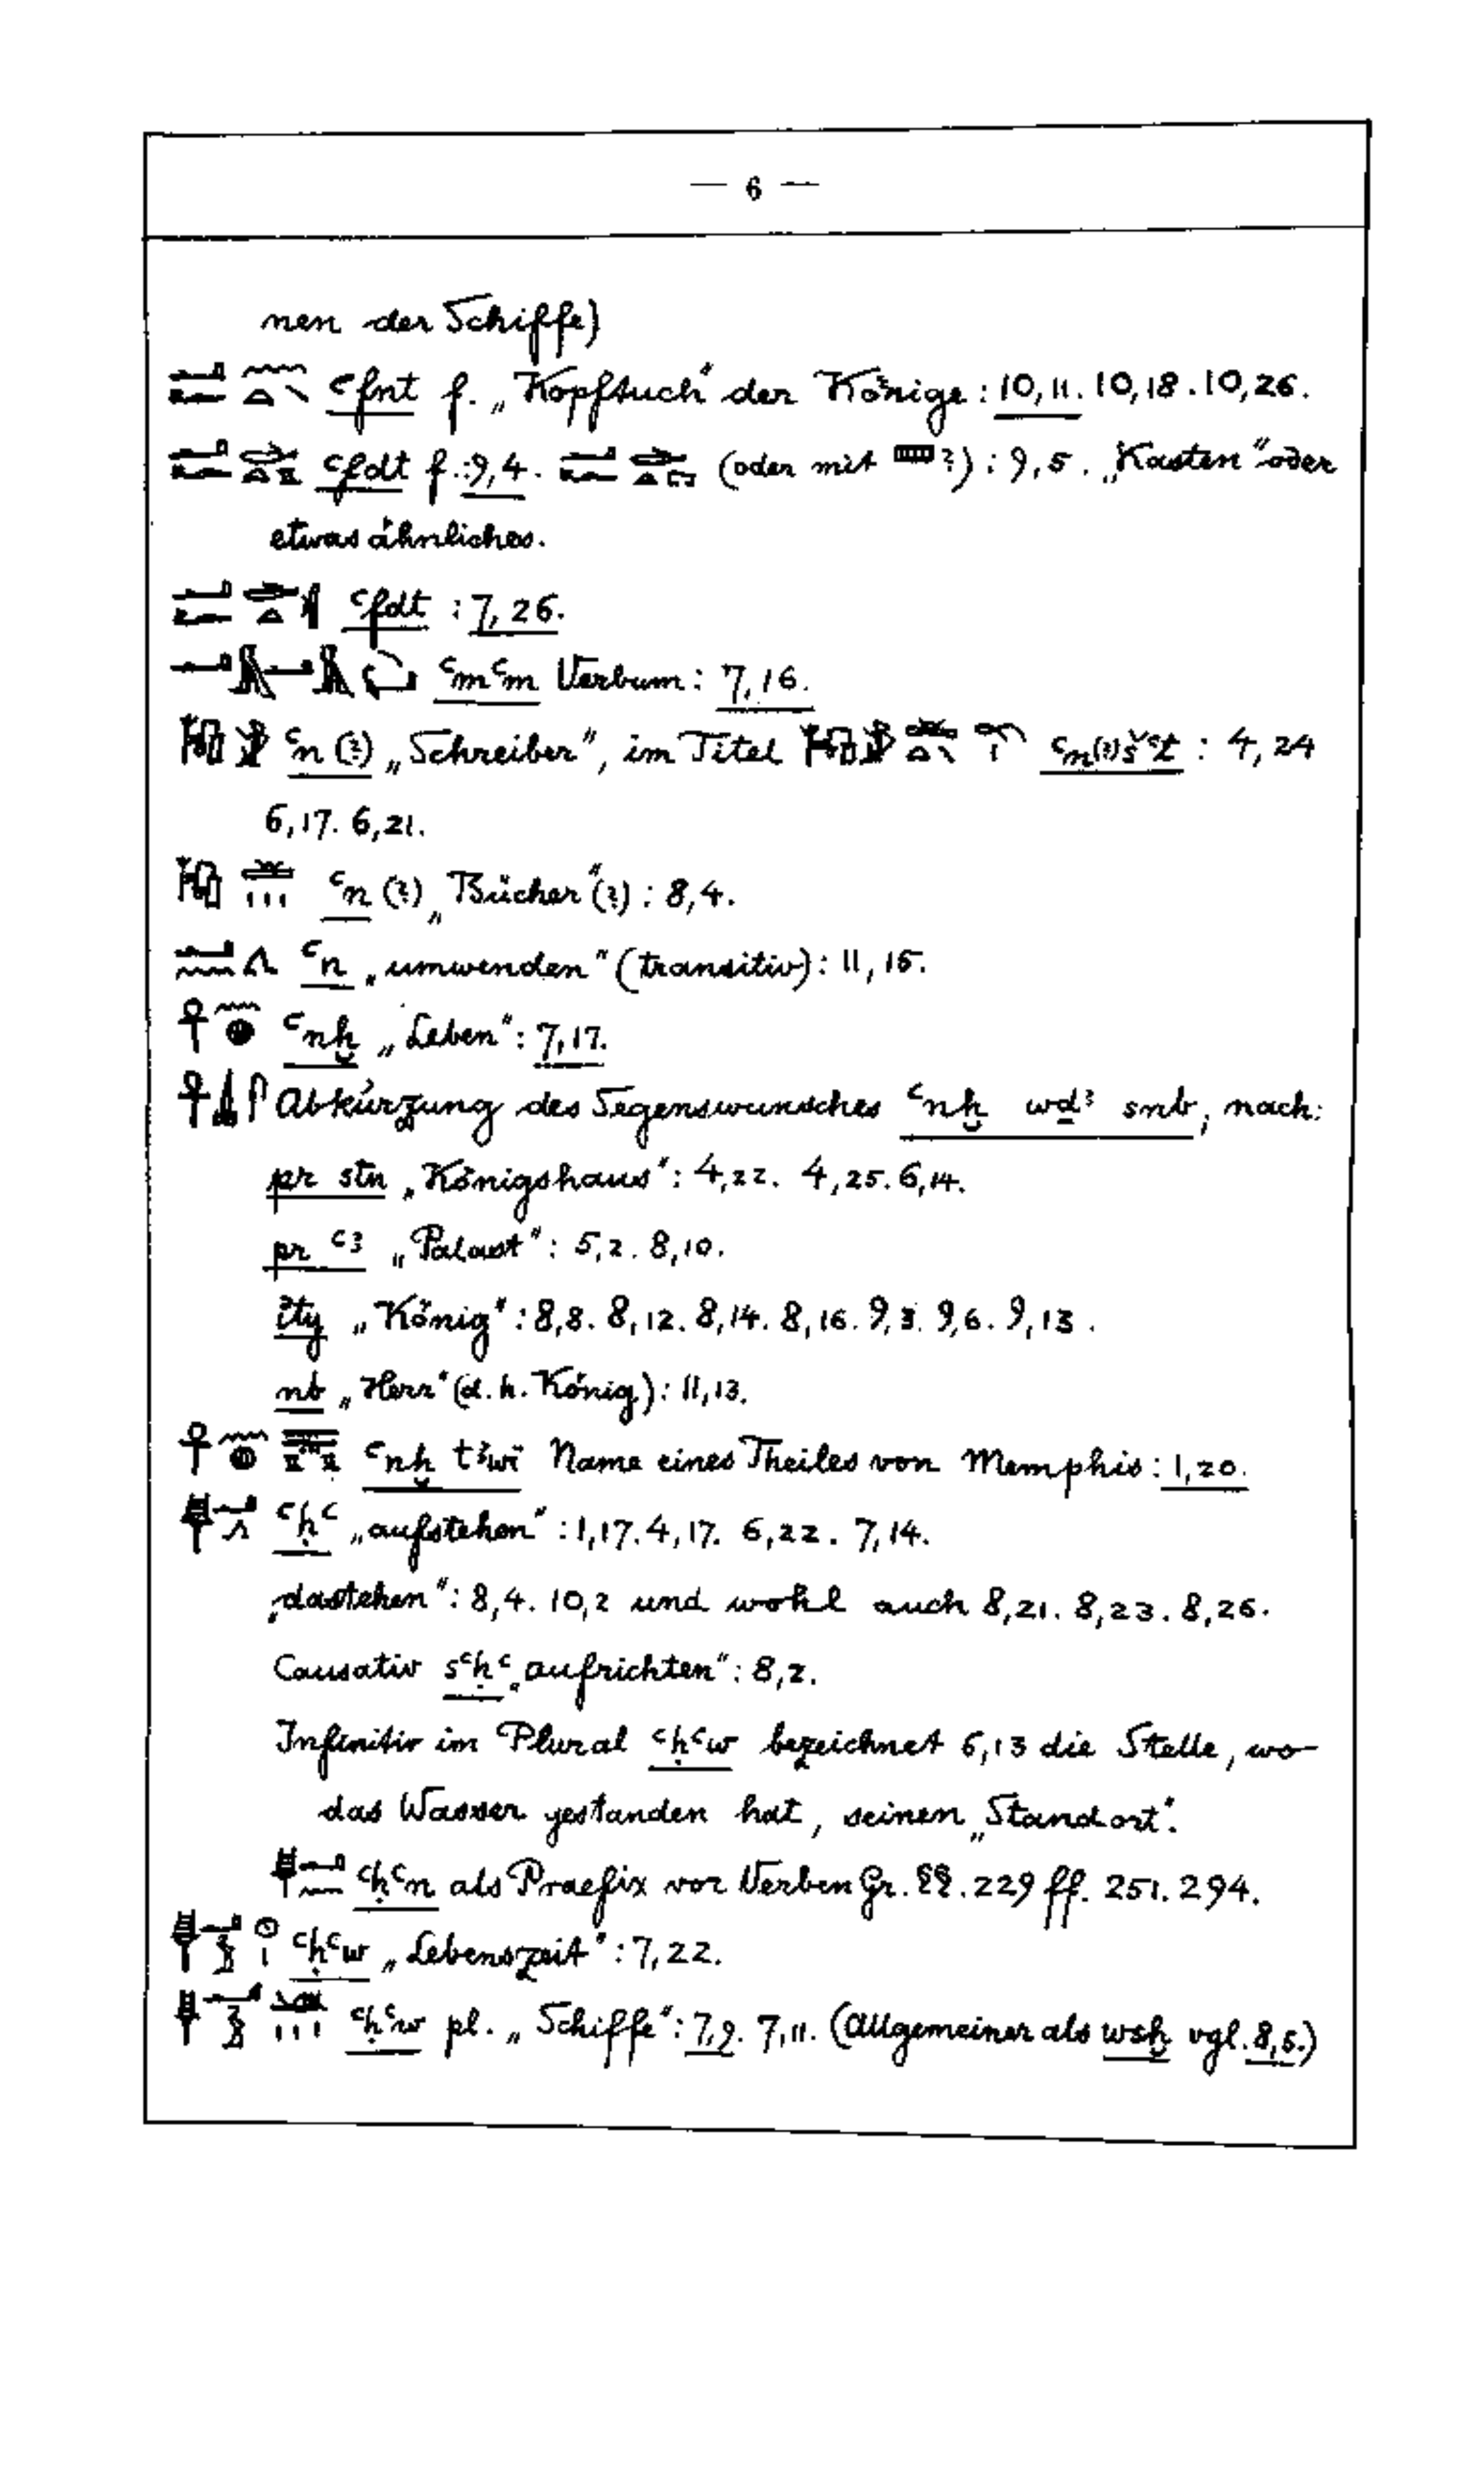 — 6 —
nen der Schiffe)
ꜥfnt f. „Kopftuch" der Könige: 10,11. 10,18. 10,26.
ꜥfdt f.: 9,4. (oder mit ?): 9,5. „Kasten" oder
etwas ähnliches.
ꜥfdt : 7,26.
ꜥmꜥm Verbum: 7,16.
ꜥn (?) „Schreiber", im Titel ꜥn(?) šꜥt : 4,24
6,17. 6,21.
ꜥn (?) „Bücher" (?) : 8,4.
ꜥn „umwenden" (transitiv): 11,15.
ꜥnḫ „Leben": 7,17.
Abkürzung des Segenswunsches ꜥnḫ wḏꜣ snb, nach:
pr stn „Königshaus": 4,22. 4,25. 6,14.
pr ꜥꜣ „Palast": 5,2. 8,10.
ꞽty „König": 8,8. 8,12. 8,14. 8,16. 9,3. 9,6. 9,13.
nb „Herr" (d.h. König): 11,13.
ꜥnḫ tꜣwï Name eines Theiles von Memphis: 1,20.
ꜥḥꜥ „aufstehen": 1,17. 4,17. 6,22. 7,14.
„dastehen": 8,4. 10,2 und wohl auch 8,21. 8,23. 8,26.
Causativ sꜥḥꜥ „aufrichten": 8,2.
Infinitiv im Plural ꜥḥꜥw bezeichnet 6,13 die Stelle, wo
das Wasser gestanden hat, seinen „Standort".
ꜥḥꜥn als Praefix vor Verben Gr. §§. 229 ff. 251. 294.
ꜥḥꜥw „Lebenszeit": 7,22.
ꜥḥꜥw pl. „Schiffe": 7,9. 7,11. (Allgemeiner als wsḫ vgl. 8,5.)